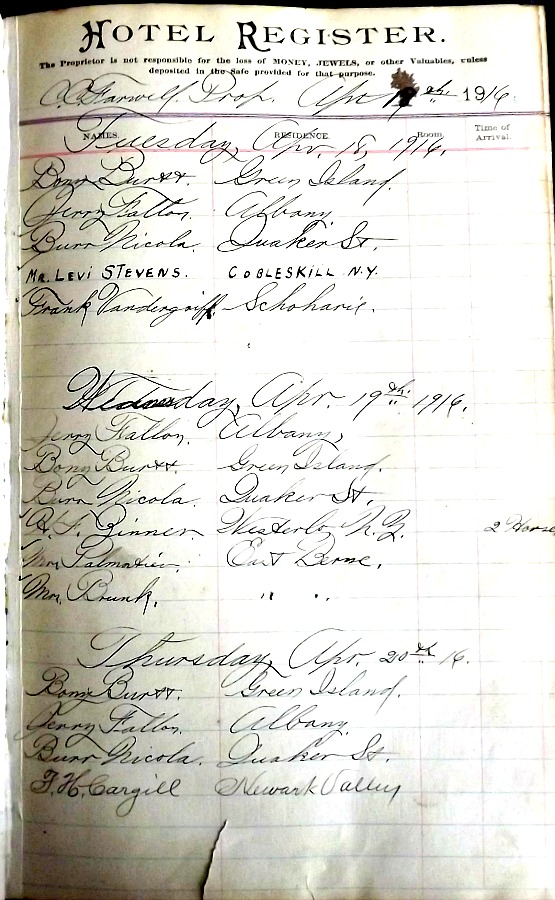 HOTEL REGISTER.
The Proprietor is not responsible for the loss of MONEY, JEWELS, or other Valuables, unless
deposited in the Safe provided for that purpose.
Farwell, Prop. Apr 1916.
NAMES. RESIDENCE. Room. Time of Arrival.
Tuesday, Apr. 18, 1916.
Bony Burtt. Green Island.
Jerry Fallon. Albany.
Burr Nicola. Quaker St.
MR. LEVI STEVENS. COBLESKILL N.Y.
Frank Vandergriff. Schoharie.
Wednesday, Apr. 19th. 1916.
Jerry Fallon. Albany,
Bony Burtt. Green Island.
Burr Nicola. Quaker St.
F. Zinner. Westerlo N.Y. 2 Horse
Mrs Palmatier. East Berne.
Mrs. Brunk. " "
Thursday, Apr. 20th 16.
Bony Burtt. Green Island.
Jerry Fallon. Albany.
Burr Nicola. Quaker St.
F. H. Cargill Newark Valley